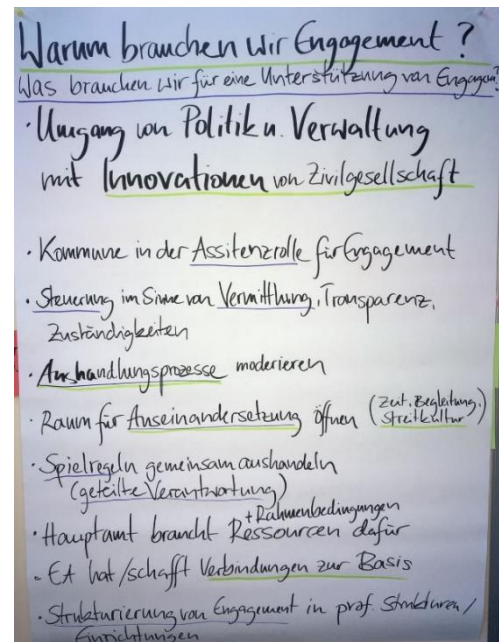 Warum brauchen wir Engagement ?
Was brauchen wir für eine Unterstützung von Engagem?
· Umgang von Politik u. Verwaltung
mit Innovationen von Zivilgesellschaft
· Kommune in der Assitenzrolle für Engagement
· Steuerung im Sinne von Vermittlung, Transparenz,
Zuständigkeiten
· Aushandlungsprozesse moderieren
· Raum für Auseinandersetzung öffnen (Zeit, Begleitung, Streitkultur)
· Spielregeln gemeinsam aushandeln
(geteilte Verantwortung)
+ Rahmenbedingungen
· Hauptamt braucht Ressourcen dafür
- EA hat/schafft Verbindungen zur Basis
· Strukturierung von Engagement in prof. Strukturen/
Einrichtungen